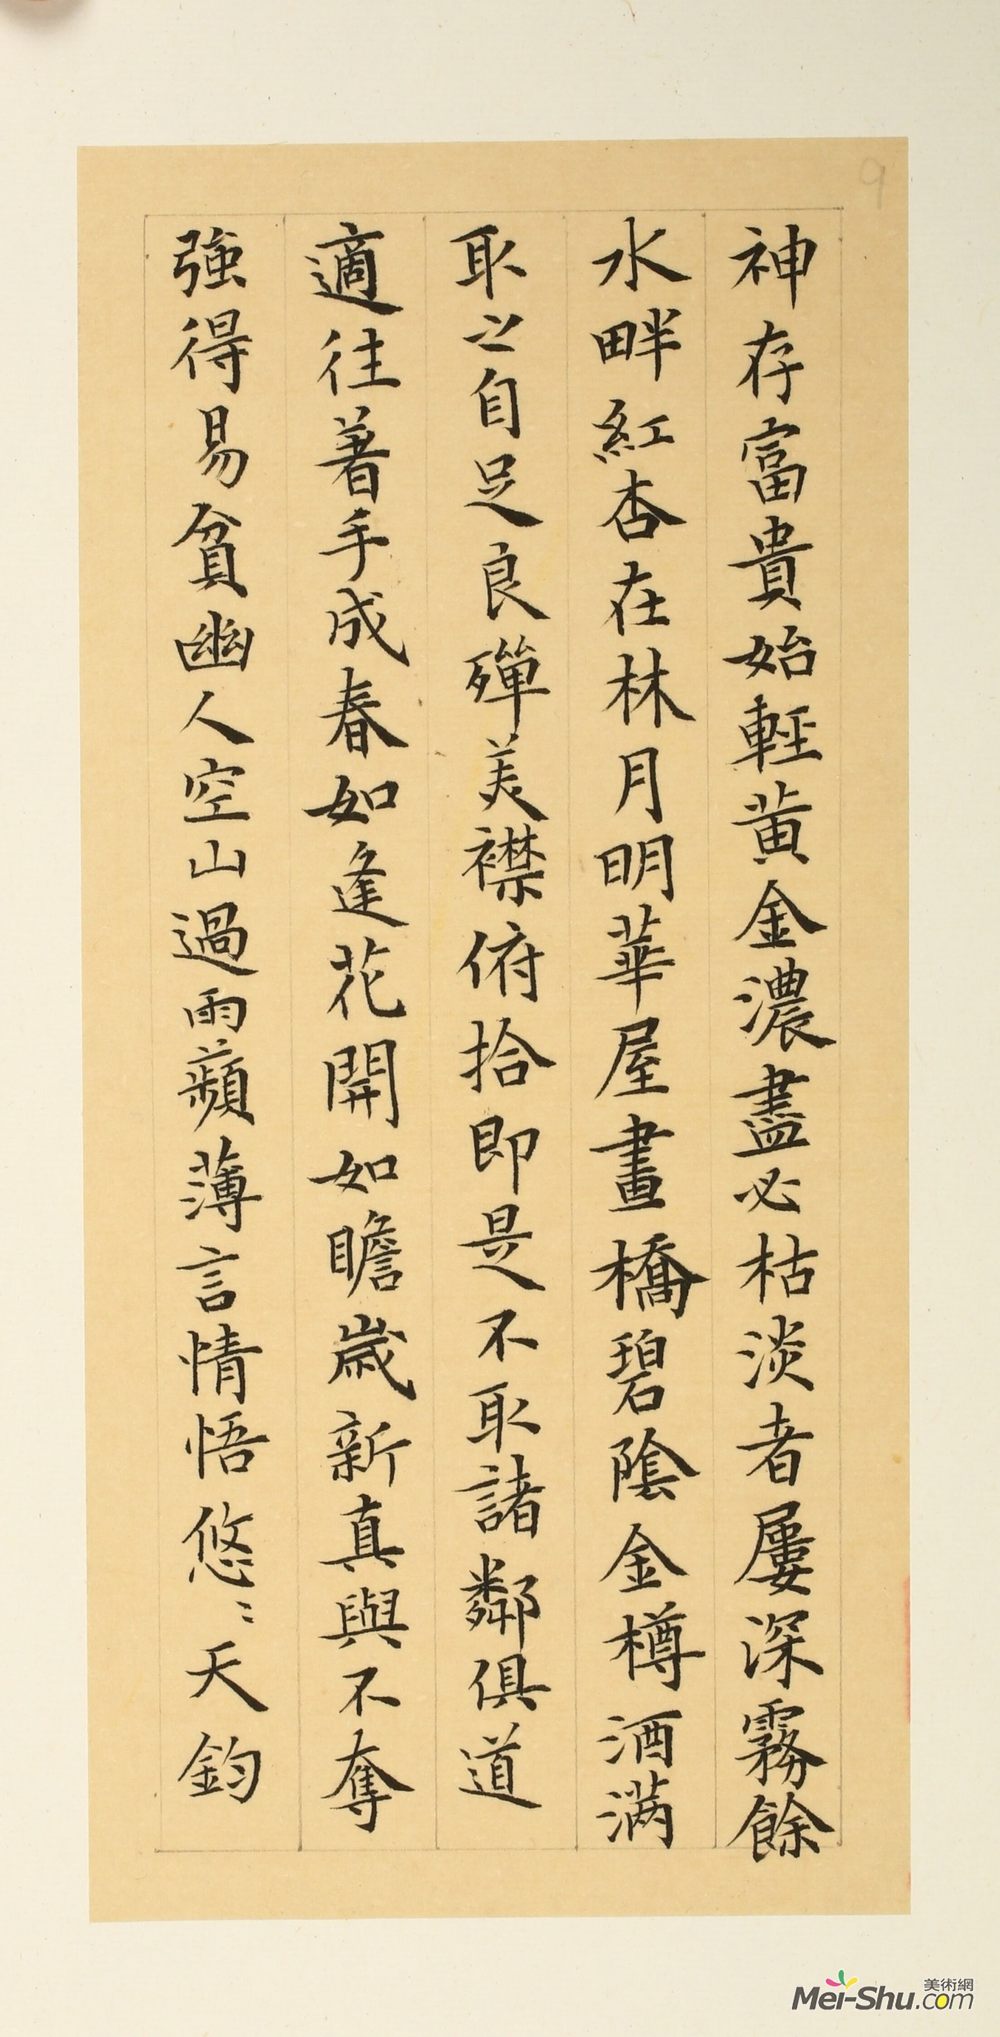 9
神存富貴始輕黄金濃盡必枯淡者屢深霧餘
水畔紅杏在林月明華屋畫橋碧陰金樽酒满
取之自足良殫美襟俯拾即是不取諸鄰俱道
適往著手成春如逢花開如瞻歲新真與不奪
強得易貧幽人空山過雨蘋薄言情悟悠〻天鈞
Mei-Shu.com 美術網